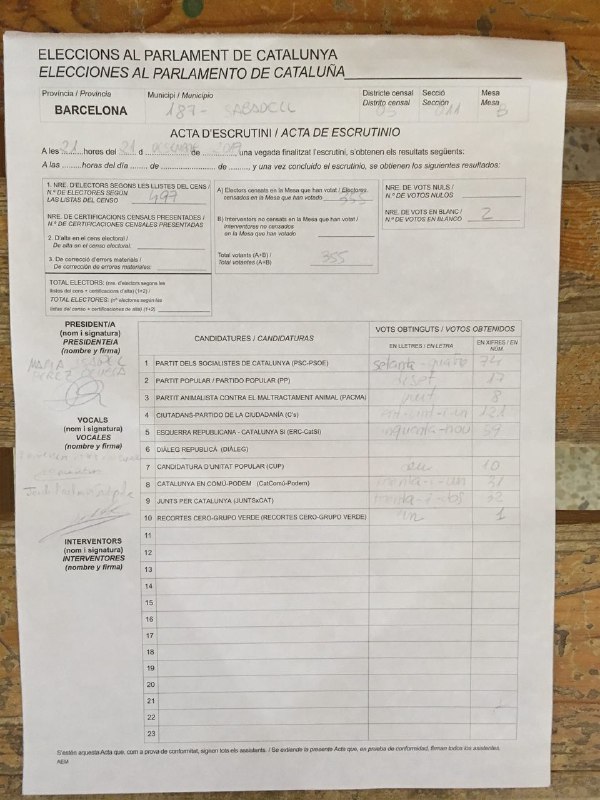 ELECCIONS AL PARLAMENT DE CATALUNYA
ELECCIONES AL PARLAMENTO DE CATALUÑA
Província / Provincia Municipi / Municipio Districte censal Secció Mesa
Distrito censal Sección Mesa
BARCELONA 187- SABADELL 05 011 B
ACTA D'ESCRUTINI / ACTA DE ESCRUTINIO
A les 21 hores del 21 d de una vegada finalitzat l'escrutini, s'obtenen els resultats següents:
A las horas del día de de y una vez concluido el escrutinio, se obtienen los siguientes resultados:
1. NRE. D'ELECTORS SEGONS LES LLISTES DEL CENS /
N.º DE ELECTORES SEGÚN
LAS LISTAS DEL CENSO 499
NRE. DE CERTIFICACIONS CENSALS PRESENTADES /
N.º DE CERTIFICACIONES CENSALES PRESENTADAS
2. D'alta en el cens electoral /
De alta en el censo electoral:
3. De correcció d'errors materials /
De corrección de errores materiales:
TOTAL ELECTORS: (nre. d'electors segons les
llistes del cens + certificacions d'alta) (1+2) /
TOTAL ELECTORES: (nº electores según las
listas del censo + certificaciones de alta) (1+2)
A) Electors censats en la Mesa que han votat / Electores
censados en la Mesa que han votado 355
B) Interventors no censats en la Mesa que han votat /
Interventores no censados
en la Mesa que han votado
Total votants (A+B) /
Total votantes (A+B) 355
NRE. DE VOTS NULS /
N.º DE VOTOS NULOS
NRE. DE VOTS EN BLANC /
N.º DE VOTOS EN BLANCO 2
PRESIDENT/A
(nom i signatura)
PRESIDENTE/A
(nombre y firma)
MARIA
PEREZ
VOCALS
(nom i signatura)
VOCALES
(nombre y firma)
INTERVENTORS
(nom i signatura)
INTERVENTORES
(nombre y firma)
CANDIDATURES / CANDIDATURAS VOTS OBTINGUTS / VOTOS OBTENIDOS
EN LLETRES / EN LETRA EN XIFRES / EN NÚM.
1 PARTIT DELS SOCIALISTES DE CATALUNYA (PSC-PSOE) setanta-quatre 74
2 PARTIT POPULAR / PARTIDO POPULAR (PP) disset 17
3 PARTIT ANIMALISTA CONTRA EL MALTRACTAMENT ANIMAL (PACMA) vuit 8
4 CIUTADANS-PARTIDO DE LA CIUDADANÍA (C's) 121
5 ESQUERRA REPUBLICANA - CATALUNYA SÍ (ERC-CatSí) cinquanta-nou 59
6 DIÀLEG REPUBLICÀ (DIÀLEG)
7 CANDIDATURA D'UNITAT POPULAR (CUP) deu 10
8 CATALUNYA EN COMÚ-PODEM (CatComú-Podem) trenta-i-un 31
9 JUNTS PER CATALUNYA (JUNTSxCAT) trenta-i-dos 32
10 RECORTES CERO-GRUPO VERDE (RECORTES CERO-GRUPO VERDE) un 1
11
12
13
14
15
16
17
18
19
20
21
22
23
S'estén aquesta Acta que, com a prova de conformitat, signen tots els assistents. / Se extiende la presente Acta que, en prueba de conformidad, firman todos los asistentes.
AE/M